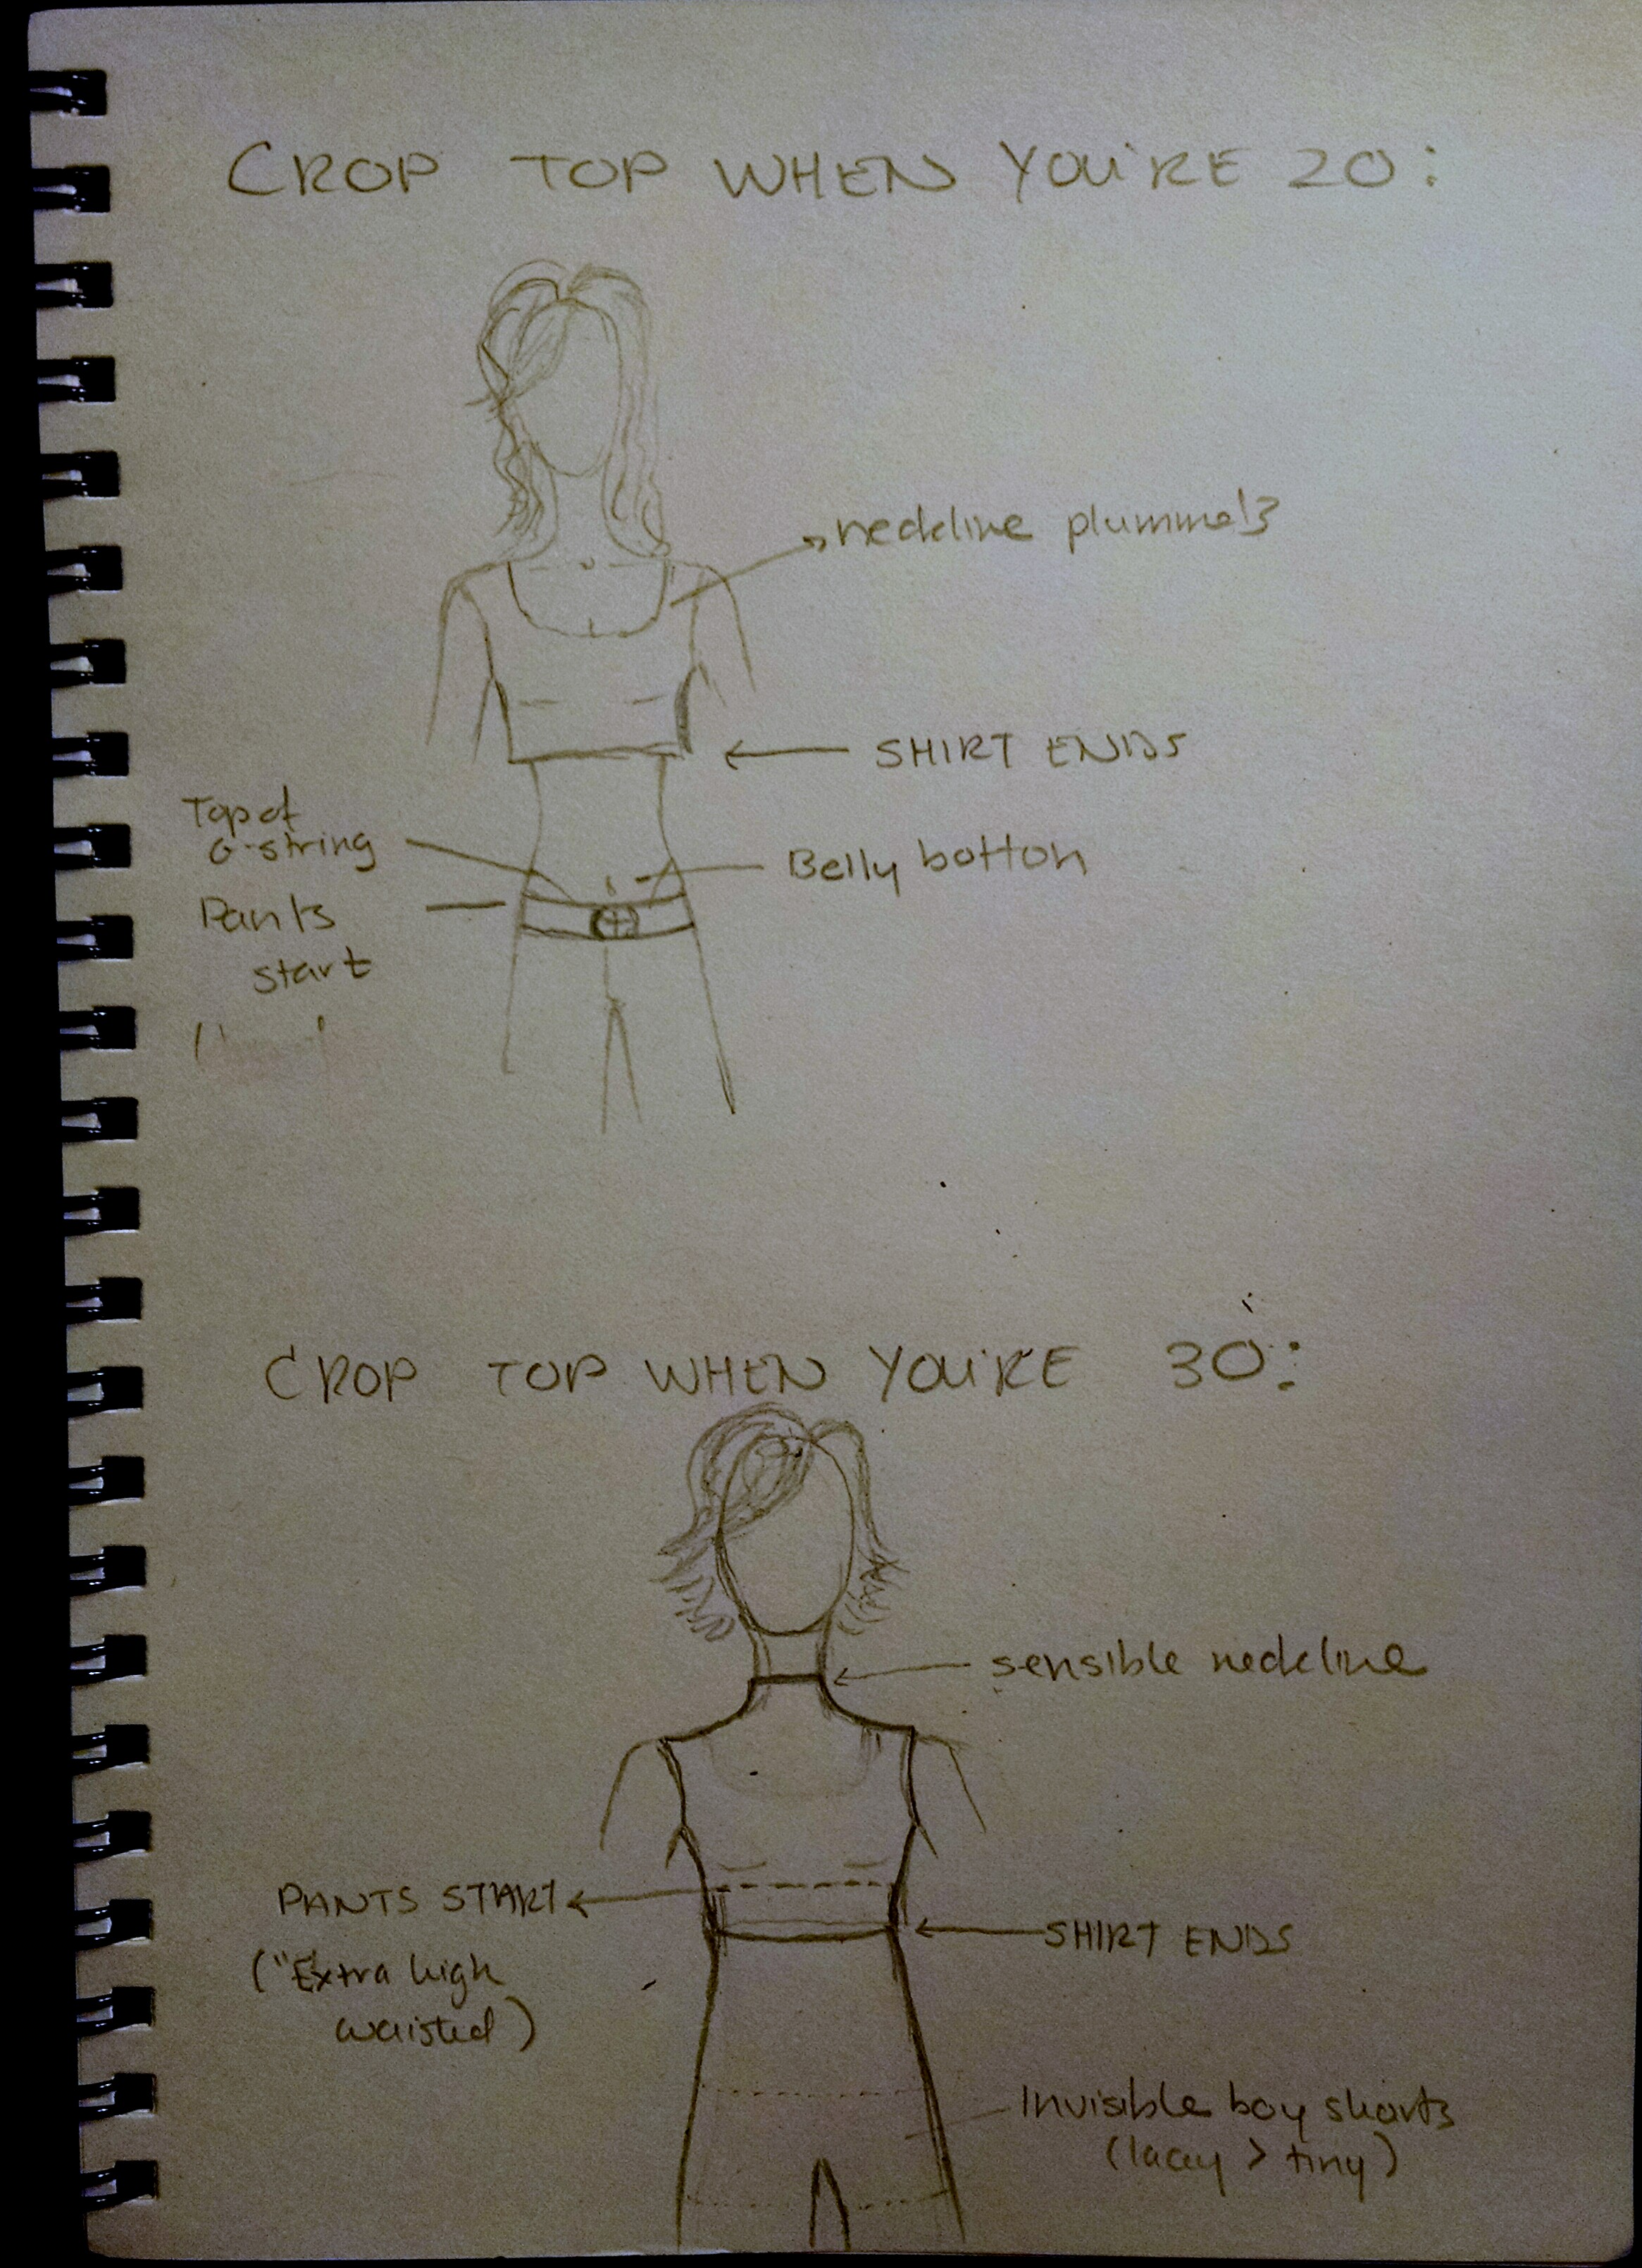 CROP TOP WHEN YOU'RE 20:
neckline plummets
SHIRT ENDS
Top of
G-string
Belly botton
Pants
start
CROP TOP WHEN YOU'RE 30:
sensible neckline
PANTS START
SHIRT ENDS
("Extra high
waisted)
Invisible boy shorts
(lacey > tiny)